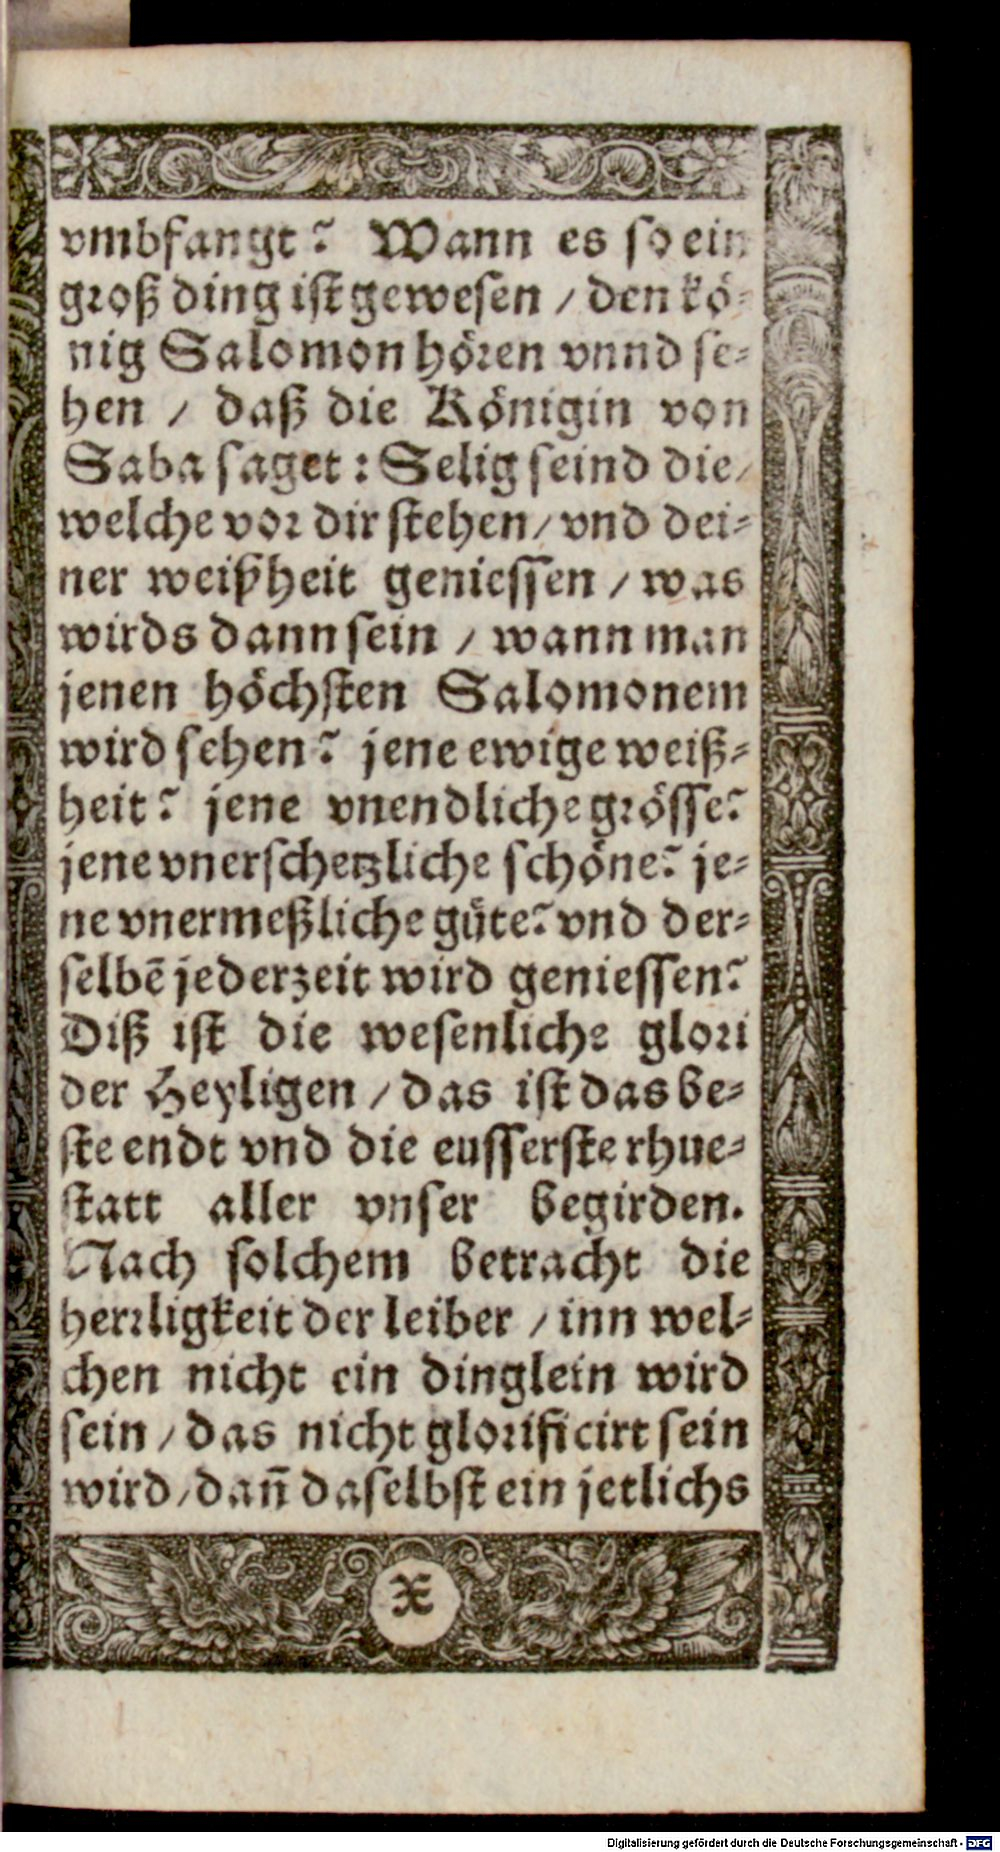 vmbfangt? Wann es so ein
groß ding ist gewesen / den kö-
nig Salomon hören vnnd se-
hen / daß die Königin von
Saba saget: Selig seind die/
welche vor dir stehen/ vnd dei-
ner weißheit geniessen / was
wirds dann sein / wann man
jenen höchsten Salomonem
wird sehen? jene ewige weiß-
heit? jene vnendliche grösse?
jene vnerschetzliche schöne? je-
ne vnermeßliche güte? vnd der-
selbẽ jederzeit wird geniessen?
Diß ist die wesenliche glori
der Heyligen / das ist das be-
ste endt vnd die eusserste rhue-
statt aller vnser begirden.
Nach solchem betracht die
herrligkeit der leiber / inn wel-
chen nicht ein dinglein wird
sein / das nicht glorificirt sein
wird / dañ daselbst ein jetlichs
x
Digitalisierung gefördert durch die Deutsche Forschungsgemeinschaft - DFG